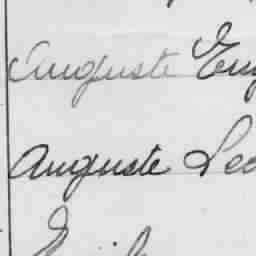 Auguste Eug
Auguste Leo